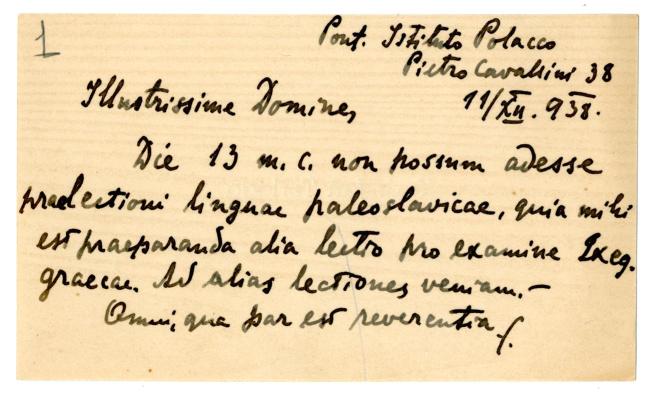 1
Pont. Istituto Polacco
Pietro Cavallini 38
11/XII. 938.
Illustrissime Domine,
Die 13 m. c. non possum adesse
praelectioni linguae paleoslavicae, quia mihi
est praeparanda alia lectio pro examine Exeg.
graecae. Ad alias lectiones veniam.-
Omni, qua par est reverentia